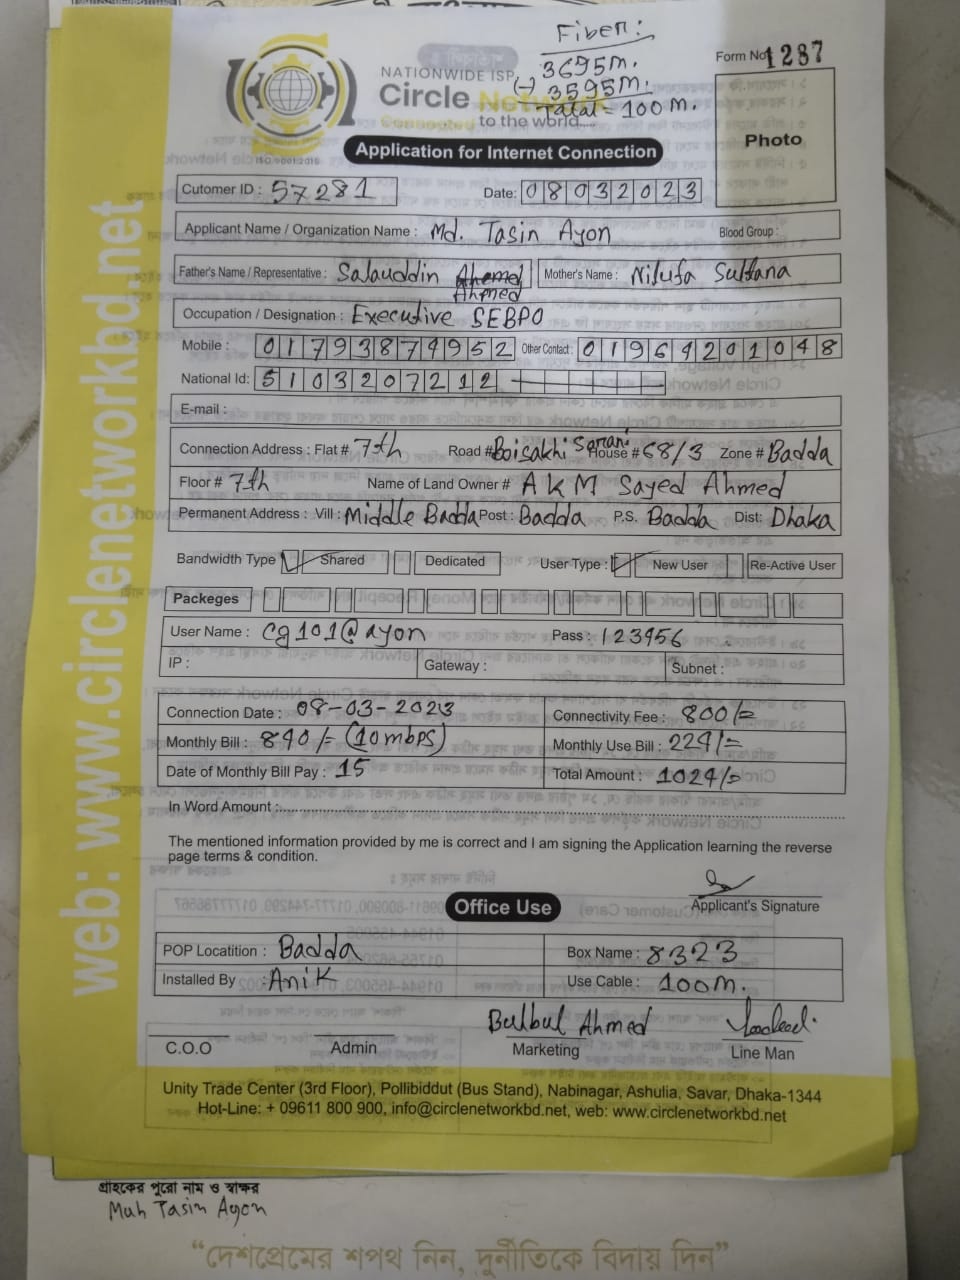 Fiber:
3695m.
(-) 3595m.
Total = 100 m.
Form No 1287
NATIONWIDE ISP
Circle Network
Connected
to the world....
ISO 9001:2015
Photo
Application for Internet Connection
Cutomer ID : 57281 Date: 08032023
Applicant Name / Organization Name : Md. Tasin Ayon Blood Group :
Father's Name / Representative : Salauddin Ahmed Mother's Name : Nilufa Sultana
Occupation / Designation : Executive SEBPO
Mobile : 01793874952 Other Contact : 01964201048
National Id: 5103207212
E-mail :
Connection Address : Flat # 7th Road # Boisakhi Sarani House # 68/3 Zone # Badda
Floor # 7th Name of Land Owner # A K M Sayed Ahmed
Permanent Address : Vill : Middle Badda Post : Badda P.S. Badda Dist: Dhaka
Bandwidth Type Shared Dedicated User Type : New User Re-Active User
Packeges
User Name : cg101@ayon Pass : 123456
IP : Gateway : Subnet :
Connection Date : 08-03-2023 Connectivity Fee : 800/=
Monthly Bill : 840/= (10mbps) Monthly Use Bill : 224/=
Date of Monthly Bill Pay : 15 Total Amount : 1024/=
In Word Amount :
The mentioned information provided by me is correct and I am signing the Application learning the reverse
page terms & condition.
Applicant's Signature
Office Use
POP Locatition : Badda Box Name : 8323
Installed By : Anik Use Cable : 100m.
Bulbul Ahmed
C.O.O Admin Marketing Line Man
Unity Trade Center (3rd Floor), Pollibiddut (Bus Stand), Nabinagar, Ashulia, Savar, Dhaka-1344
Hot-Line: + 09611 800 900, info@circlenetworkbd.net, web: www.circlenetworkbd.net
web: www.circlenetworkbd.net
গ্রাহকের পুরো নাম ও স্বাক্ষর
Muh Tasin Ayon
“দেশপ্রেমের শপথ নিন, দুর্নীতিকে বিদায় দিন”